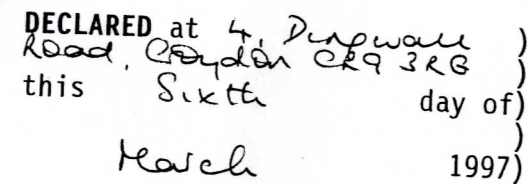 DECLARED at 4, Dingwall )
Road, Croydon CR9 3RB )
this Sixth day of)
)
March 1997)